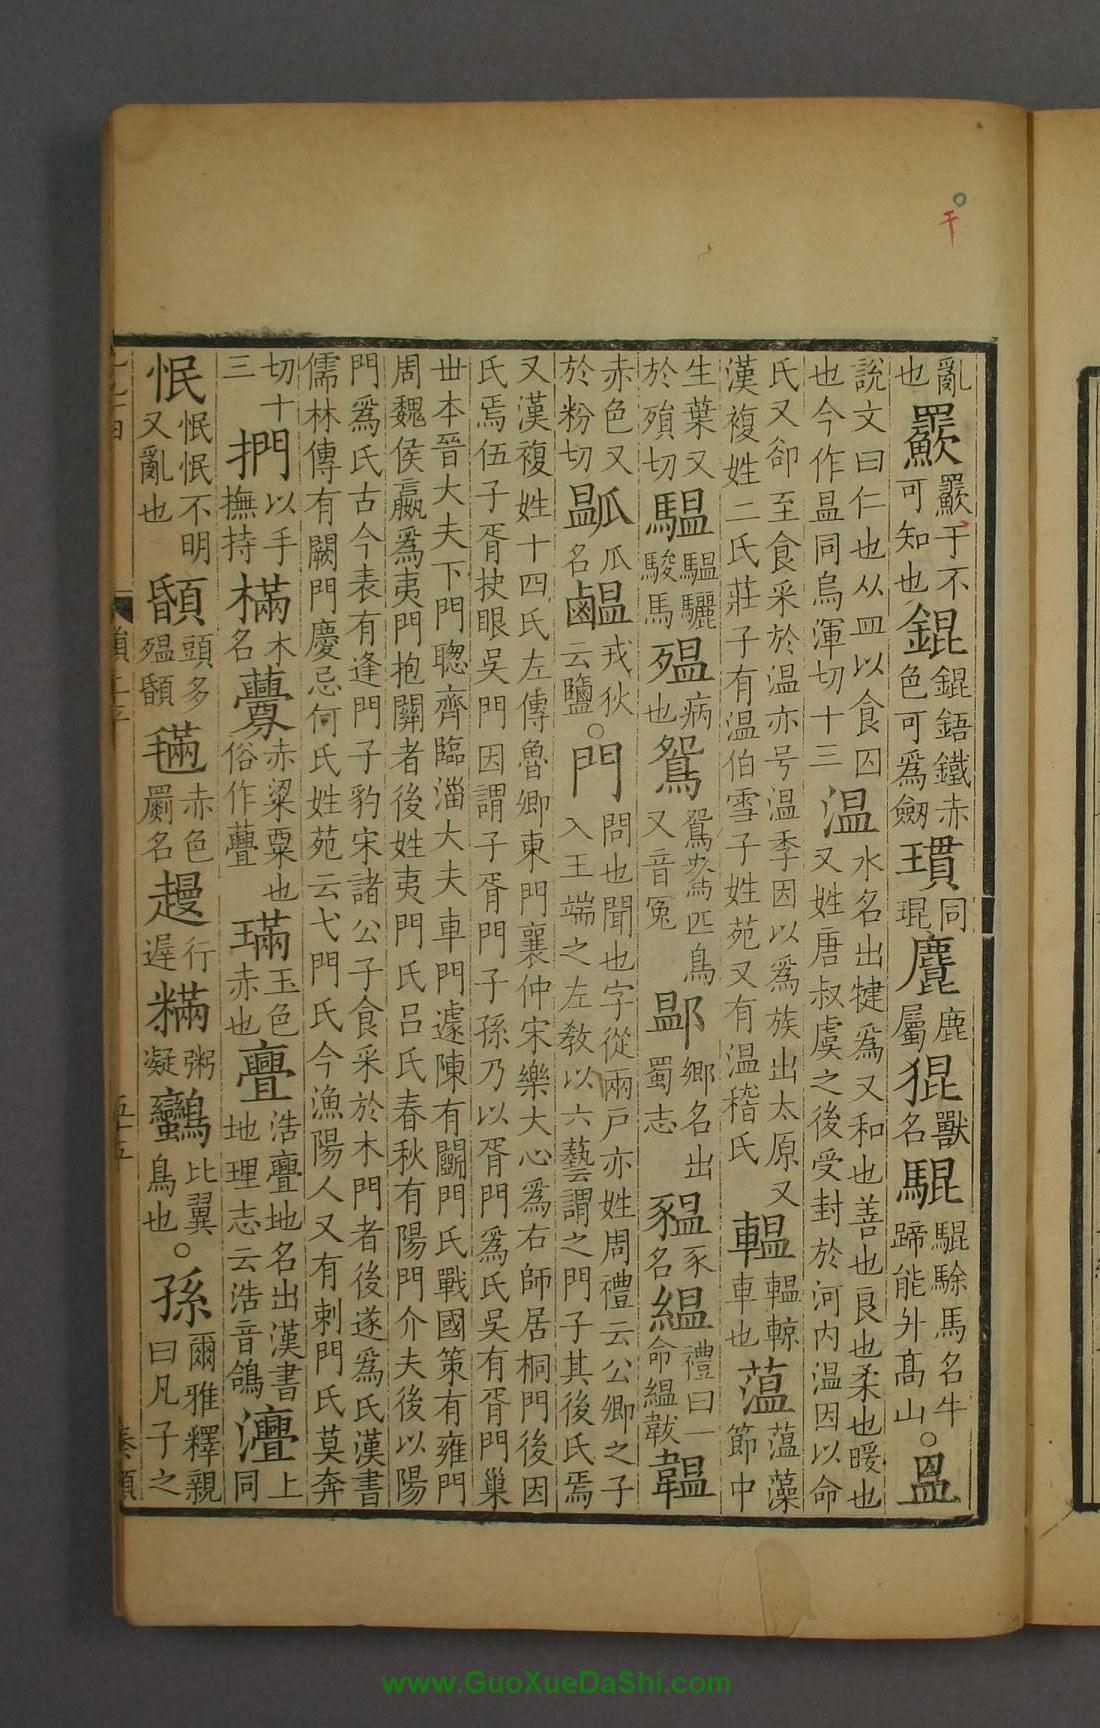 亂也䍔䍔于不可知也錕錕鋙鐵赤色可爲劔瑻同琨麎鹿屬猑獸名騉騉駼馬名牛蹄能升髙山。昷
說文曰仁也从皿以食囚也今作昷同烏渾切十三温水名出犍爲又和也善也良也柔也暖也又姓唐叔虞之後受封於河内温因以命
氏又郤至食采於温亦号温季因以爲族出太原又漢複姓二氏莊子有温伯雪子姓苑又有温稽氏轀轀輬車也薀薀藻節中
生葉又於殞切騩騩驪駿馬殟病也鴛鴛鴦匹鳥又音冤䣖鄉名出蜀志豱豕名緼禮曰一命緼韍韞
赤色又於粉切瓜名戎狄云鹽。門問也聞也字從兩戸亦姓周禮云公卿之子入王端之左敎以六藝謂之門子其後氏焉
又漢複姓十四氏左傳魯卿東門襄仲宋樂大心爲右師居桐門後因氏焉伍子胥抉眼吳門因謂子胥門子孫乃以胥門爲氏吳有胥門巢
丗本晉大夫下門聰齊臨淄大夫車門遽陳有闞門氏戰國策有雍門周魏侯嬴爲夷門抱關者後姓夷門氏吕氏春秋有陽門介夫後以陽
門爲氏古今表有逢門子豹宋諸公子食采於木門者後遂爲氏漢書儒林傳有闕門慶忌何氏姓苑云弋門氏今漁陽人又有剌門氏莫奔
切十三捫以手撫持樠木名虋赤粱粟也俗作䕷璊玉色赤也亹浩亹地名出漢書地理志云浩音鴿灖上同
怋怋怋不明又亂也顐頭多殟䫒𣯩赤色罽名𧽼行遅䊟粥凝鸗比翼鳥也。孫爾雅釋親曰凡子之
www.GuoXueDaShi.com